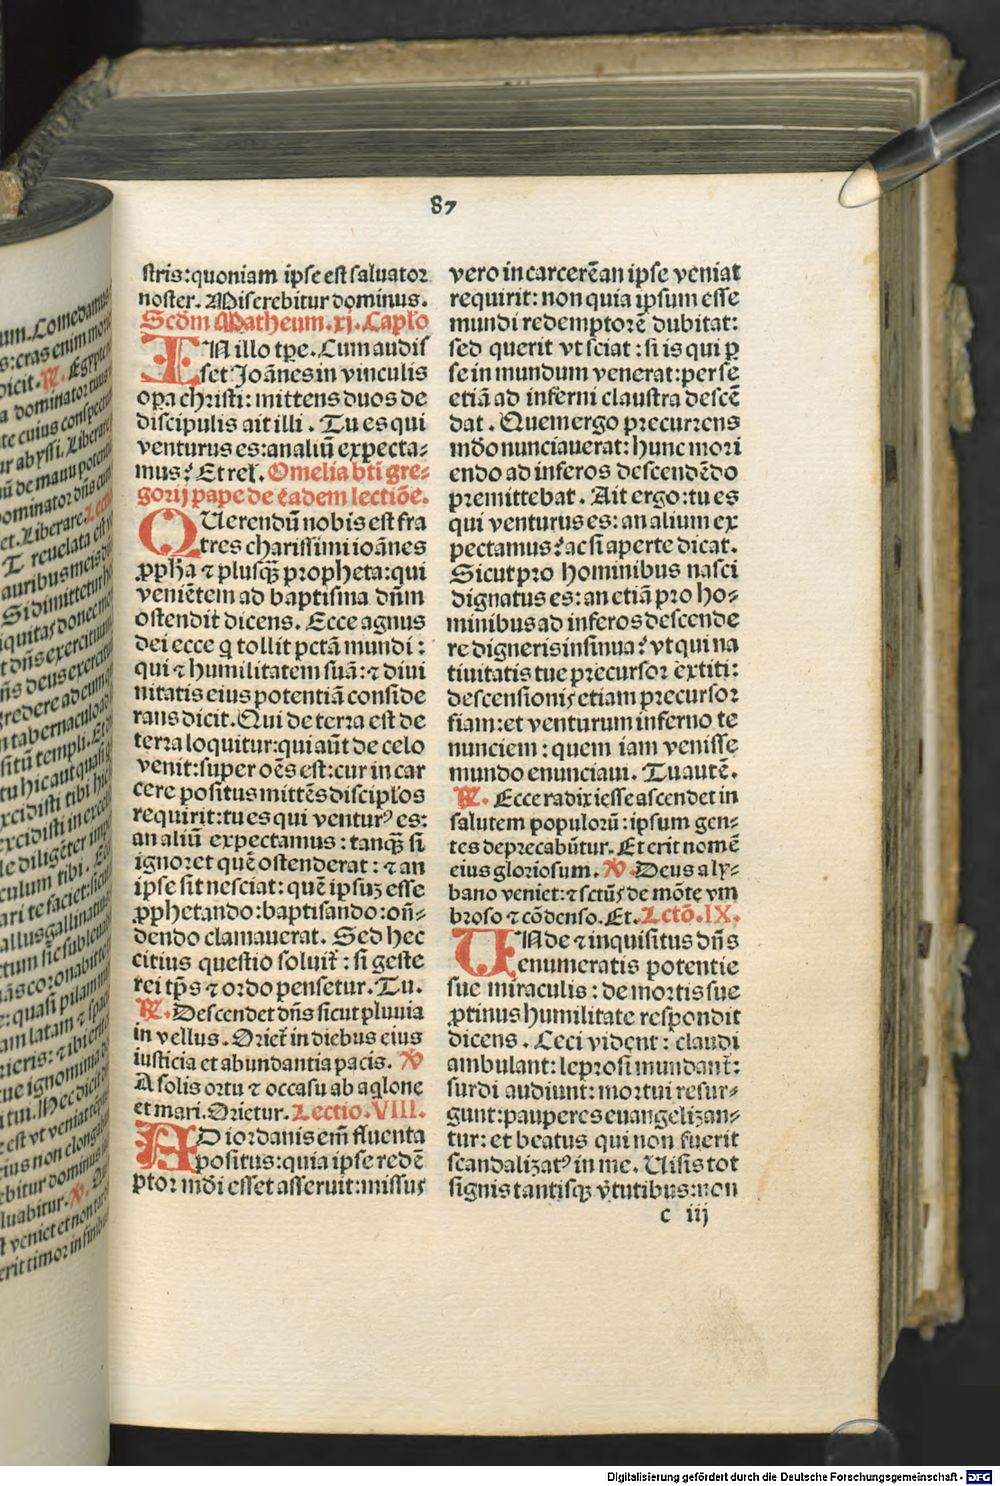 87
stris:quoniam ipse est saluator
noster. Miserebitur dominus.
Scdm Matheum.xj.Caplo
IN illo tpe. Cum audis
set Joānes in vinculis
opa christi: mittens duos de
discipulis ait illi. Tu es qui
venturus es:an aliū expecta-
mus? Et rel. Omelia bti gre-
gorij pape de eadem lectiōe.
QUerendū nobis est fra
tres charissimi ioānes
ꝓpha ⁊ plusqꝫ propheta:qui
veniētem ad baptisma dn̄m
ostendit dicens. Ecce agnus
dei ecce q tollit pctā mundi:
qui ⁊ humilitatem suā:⁊ diui
nitatis eius potentiā conside
rans dicit. Qui de terra est de
terra loquitur:qui aūt de celo
venit:super oēs est:cur in car
cere positus mittēs disciplos
requirit:tu es qui venturꝰ es:
an aliū expectamus: tanqꝫ si
ignoret quē ostenderat: ⁊ an
ipse sit nesciat: quē ipsuꝫ esse
ꝓphetando:baptisando:on̄-
dendo clamauerat. Sed hec
citius questio soluit̄: si geste
rei tp̄s ⁊ ordo pensetur. Tu.
℟. Descendet dn̄s sicut pluuia
in vellus. Oriet̄ in diebus eius
iusticia et abundantia pacis. ℣
A solis ortu ⁊ occasu ab aqlone
et mari. Orietur. Lectio.VIII.
AD iordanis em̄ fluenta
positus:quia ipse redē
ptor mdi esset asseruit:missus
vero in carcerē an ipse veniat
requirit: non quia ipsum esse
mundi redemptorē dubitat:
sed querit vt sciat: si is qui p̲
se in mundum venerat:per se
etiā ad inferni claustra descē
dat. Quem ergo precurrens
mdo nunciauerat: hunc mori
endo ad inferos descendēdo
premittebat. Ait ergo:tu es
qui venturus es: an alium ex
pectamus? ac si aperte dicat.
Sicut pro hominibus nasci
dignatus es: an etiā pro ho-
minibus ad inferos descende
re digneris insinua? vt qui na
tiuitatis tue precursor extiti:
descensionis etiam precursor
fiam:et venturum inferno te
nunciem: quem iam venisse
mundo enunciaui. Tu autē.
℟. Ecce radix iesse ascendet in
salutem populorū: ipsum gen-
tes deprecabūtur. Et erit nomē
eius gloriosum. ℣. Deus a ly-
bano veniet: ⁊ sctūs de mōte vm
broso ⁊ cōdenso. Et. Lctō.IX.
UNde ⁊ inquisitus dn̄s
enumeratis potentie
sue miraculis: de mortis sue
ꝓtinus humilitate respondit
dicens. Ceci vident: claudi
ambulant: leprosi mundant̄:
surdi audiunt: mortui resur-
gunt: pauperes euangelizan-
tur: et beatus qui non fuerit
scandalizatꝰ in me. Uisis tot
signis tantisqꝫ v̄tutibus:non
c iij
Digitalisierung gefördert durch die Deutsche Forschungsgemeinschaft - DFG